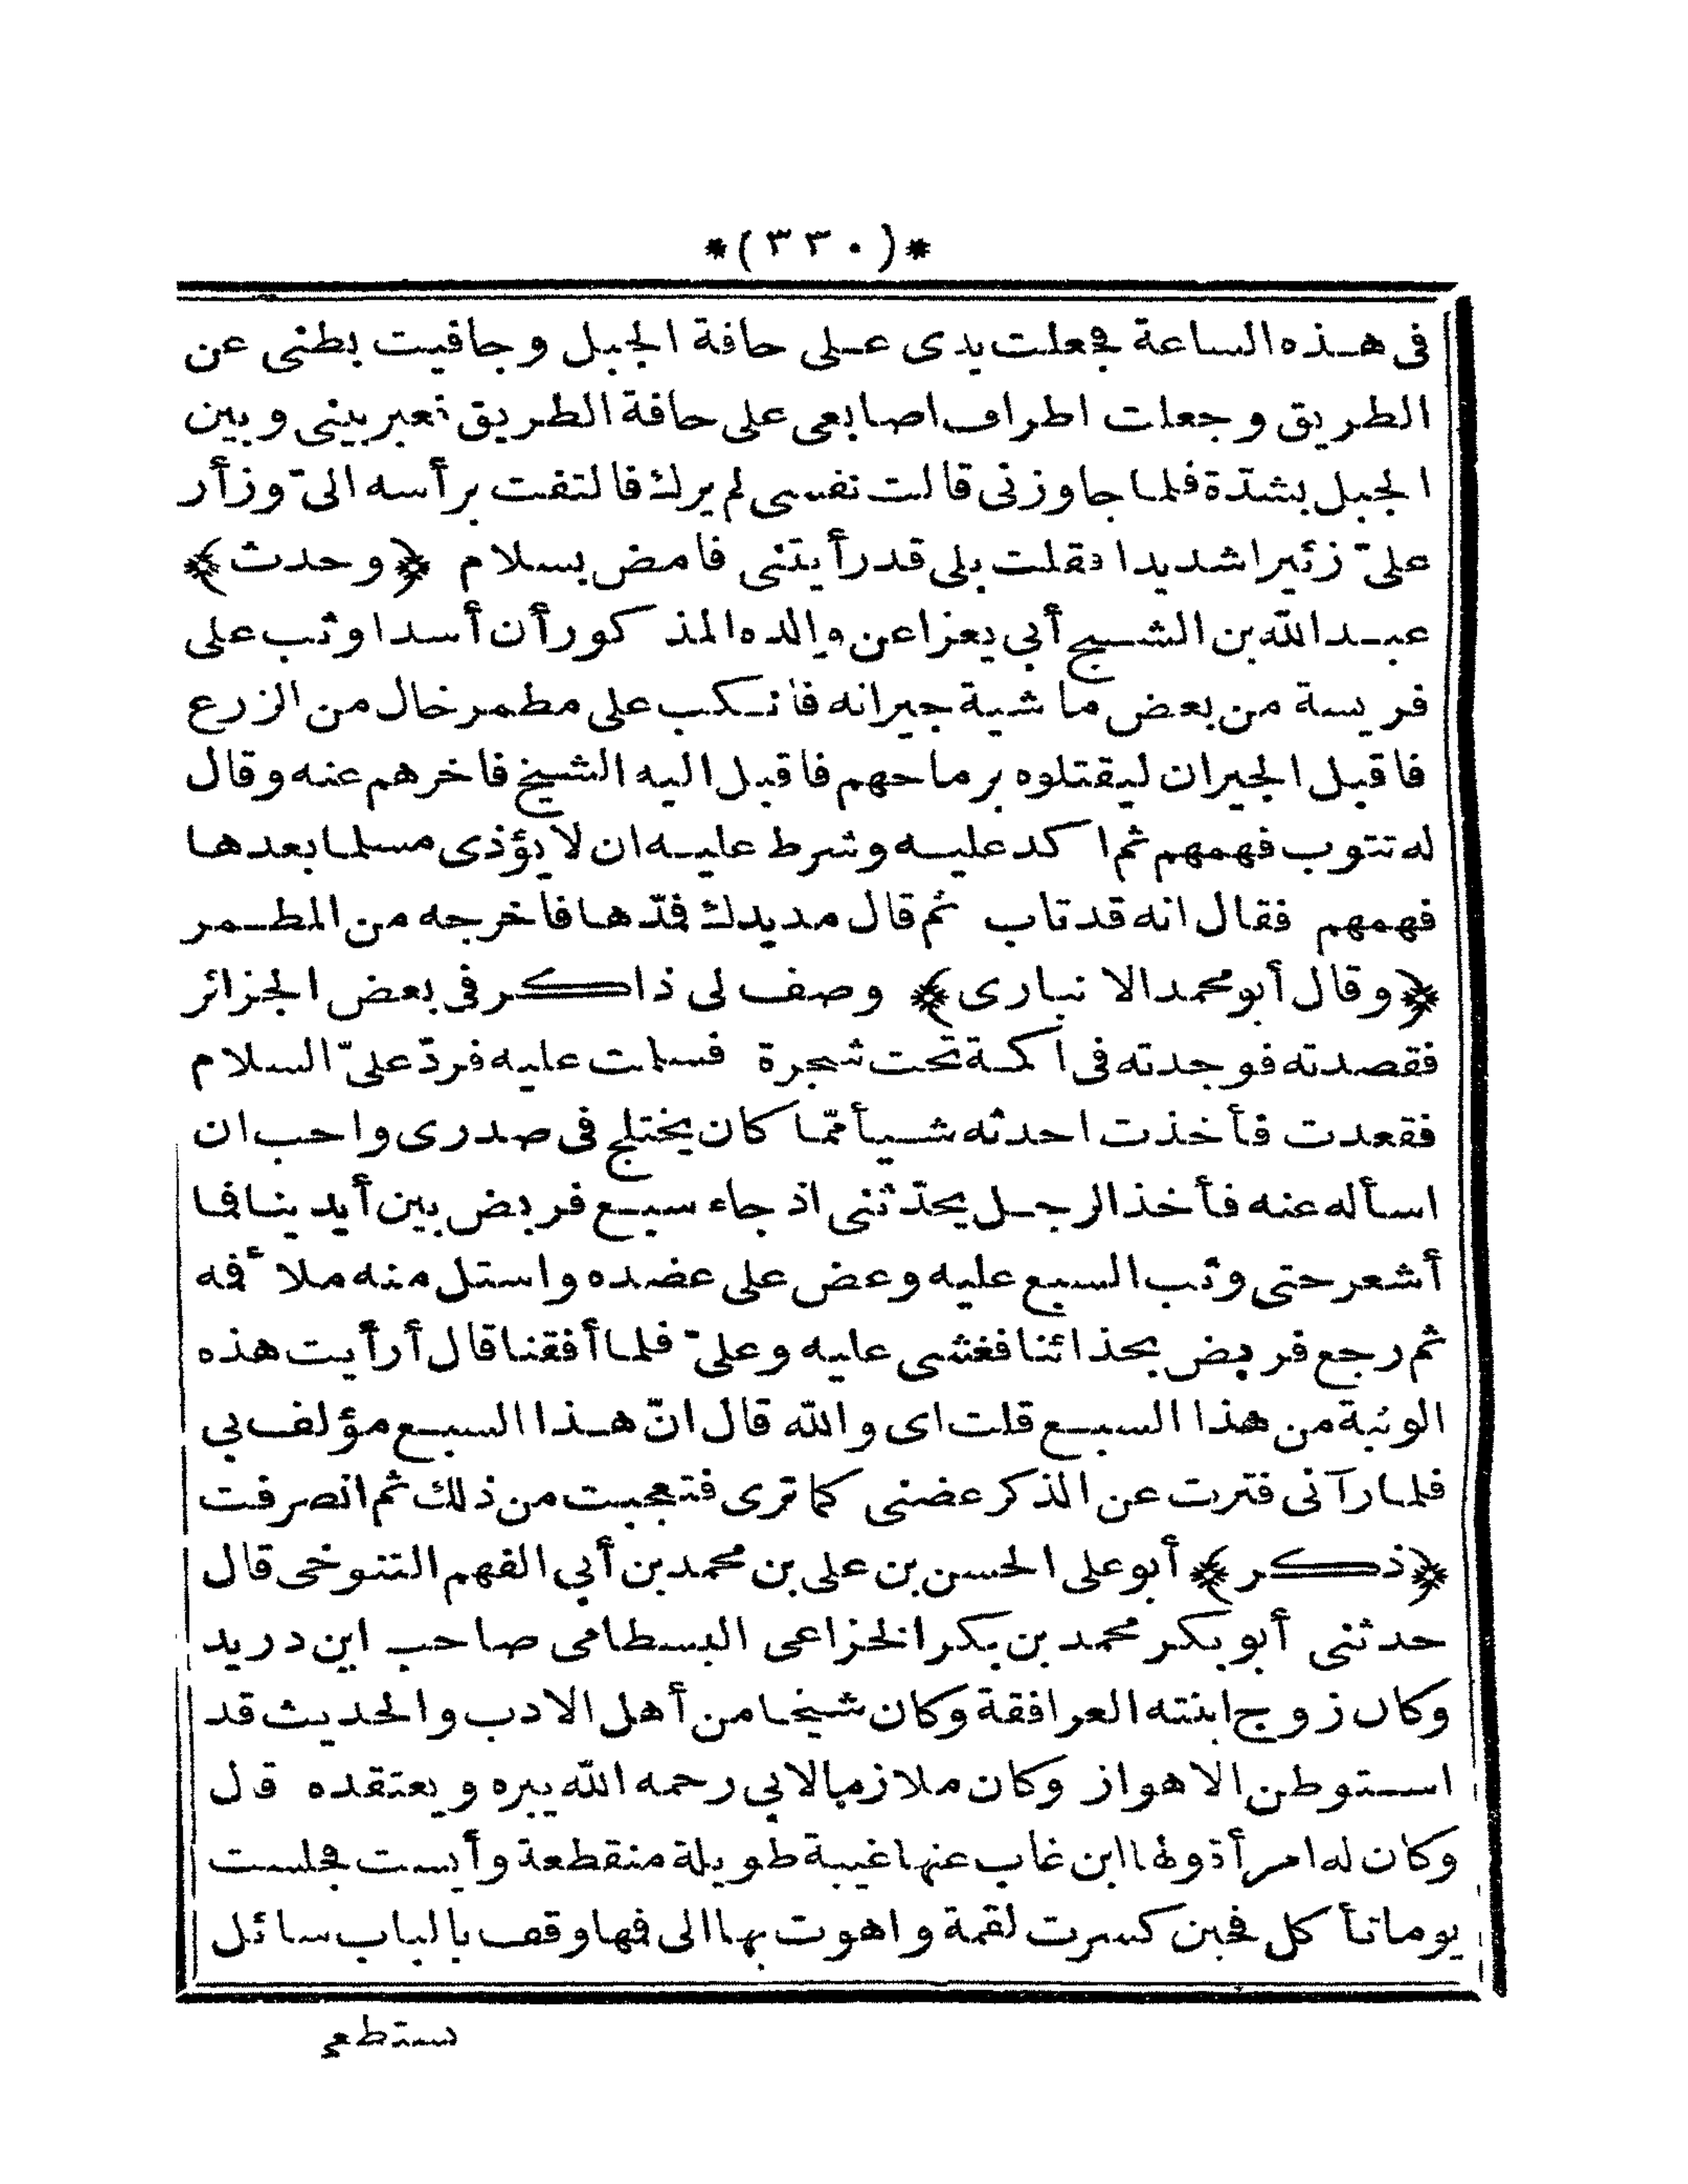 *(٣٣٠)*
فى هذه الساعة فجعلت يدى على حافة الجبل وجافيت بطنى عن
الطريق وجعلت اطراف اصابعى على حافة الطريق فعبر بينى وبين
الجبل بشدّة فلما جاوزنى قالت نفسى لم يرك فالتفت برأسه الىّ وزأر
علىّ زئيرا شديدا فقلت بلى قد رأيتنى فامض بسلام ﴿وحدث﴾
عبد الله بن الشيخ أبي يعزا عن والده المذكور أن أسدا وثب على
فريسة من بعض ماشية جيرانه فانكب على مطمر خال من الزرع
فاقبل الجيران ليقتلوه برماحهم فاقبل اليه الشيخ فاخرهم عنه وقال
له تتوب فهمهم ثم اكد عليه وشرط عليه ان لا يؤذى مسلما بعدها
فهمهم فقال انه قد تاب ثم قال مد يدك فمدّها فأخرجه من المطمر
﴿وقال أبو محمد الانبارى﴾ وصف لى ذاكر فى بعض الجزائر
فقصدته فوجدته فى اكمة تحت شجرة فسلمت عليه فردّ علىّ السلام
فقعدت فأخذت احدثه شيأ ممّا كان يختلج فى صدرى واحب ان
اسأله عنه فأخذ الرجل يحدّثنى اذ جاء سبع فربض بين أيدينا فما
أشعر حتى وثب السبع عليه وعض على عضده واستل منه ملأ فه
ثم رجع فربض بحذائنا فغشى عليه وعلىّ فلما أفقنا قال أرأيت هذه
الوثبة من هذا السبع قلت اى والله قال انّ هذا السبع مؤلف بي
فلما رآنى فترت عن الذكر عضنى كما ترى فتعجبت من ذلك ثم انصرفت
﴿ذكر﴾ أبو على الحسن بن على بن محمد بن أبي الفهم التنوخى قال
حدثنى أبو بكر محمد بن بكر الخزاعى البسطامى صاحب ابن دريد
وكان زوج ابنته العرافقة وكان شيخا من أهل الادب والحديث قد
استوطن الاهواز وكان ملازما لابي رحمه الله يبره ويعتقده قال
وكان له امرأة ولها ابن غاب عنها غيبة طويلة منقطعة وأيست فجلست
يوما تأكل فحين كسرت لقمة واهوت بها الى فها وقف بالباب سائل
ستطع